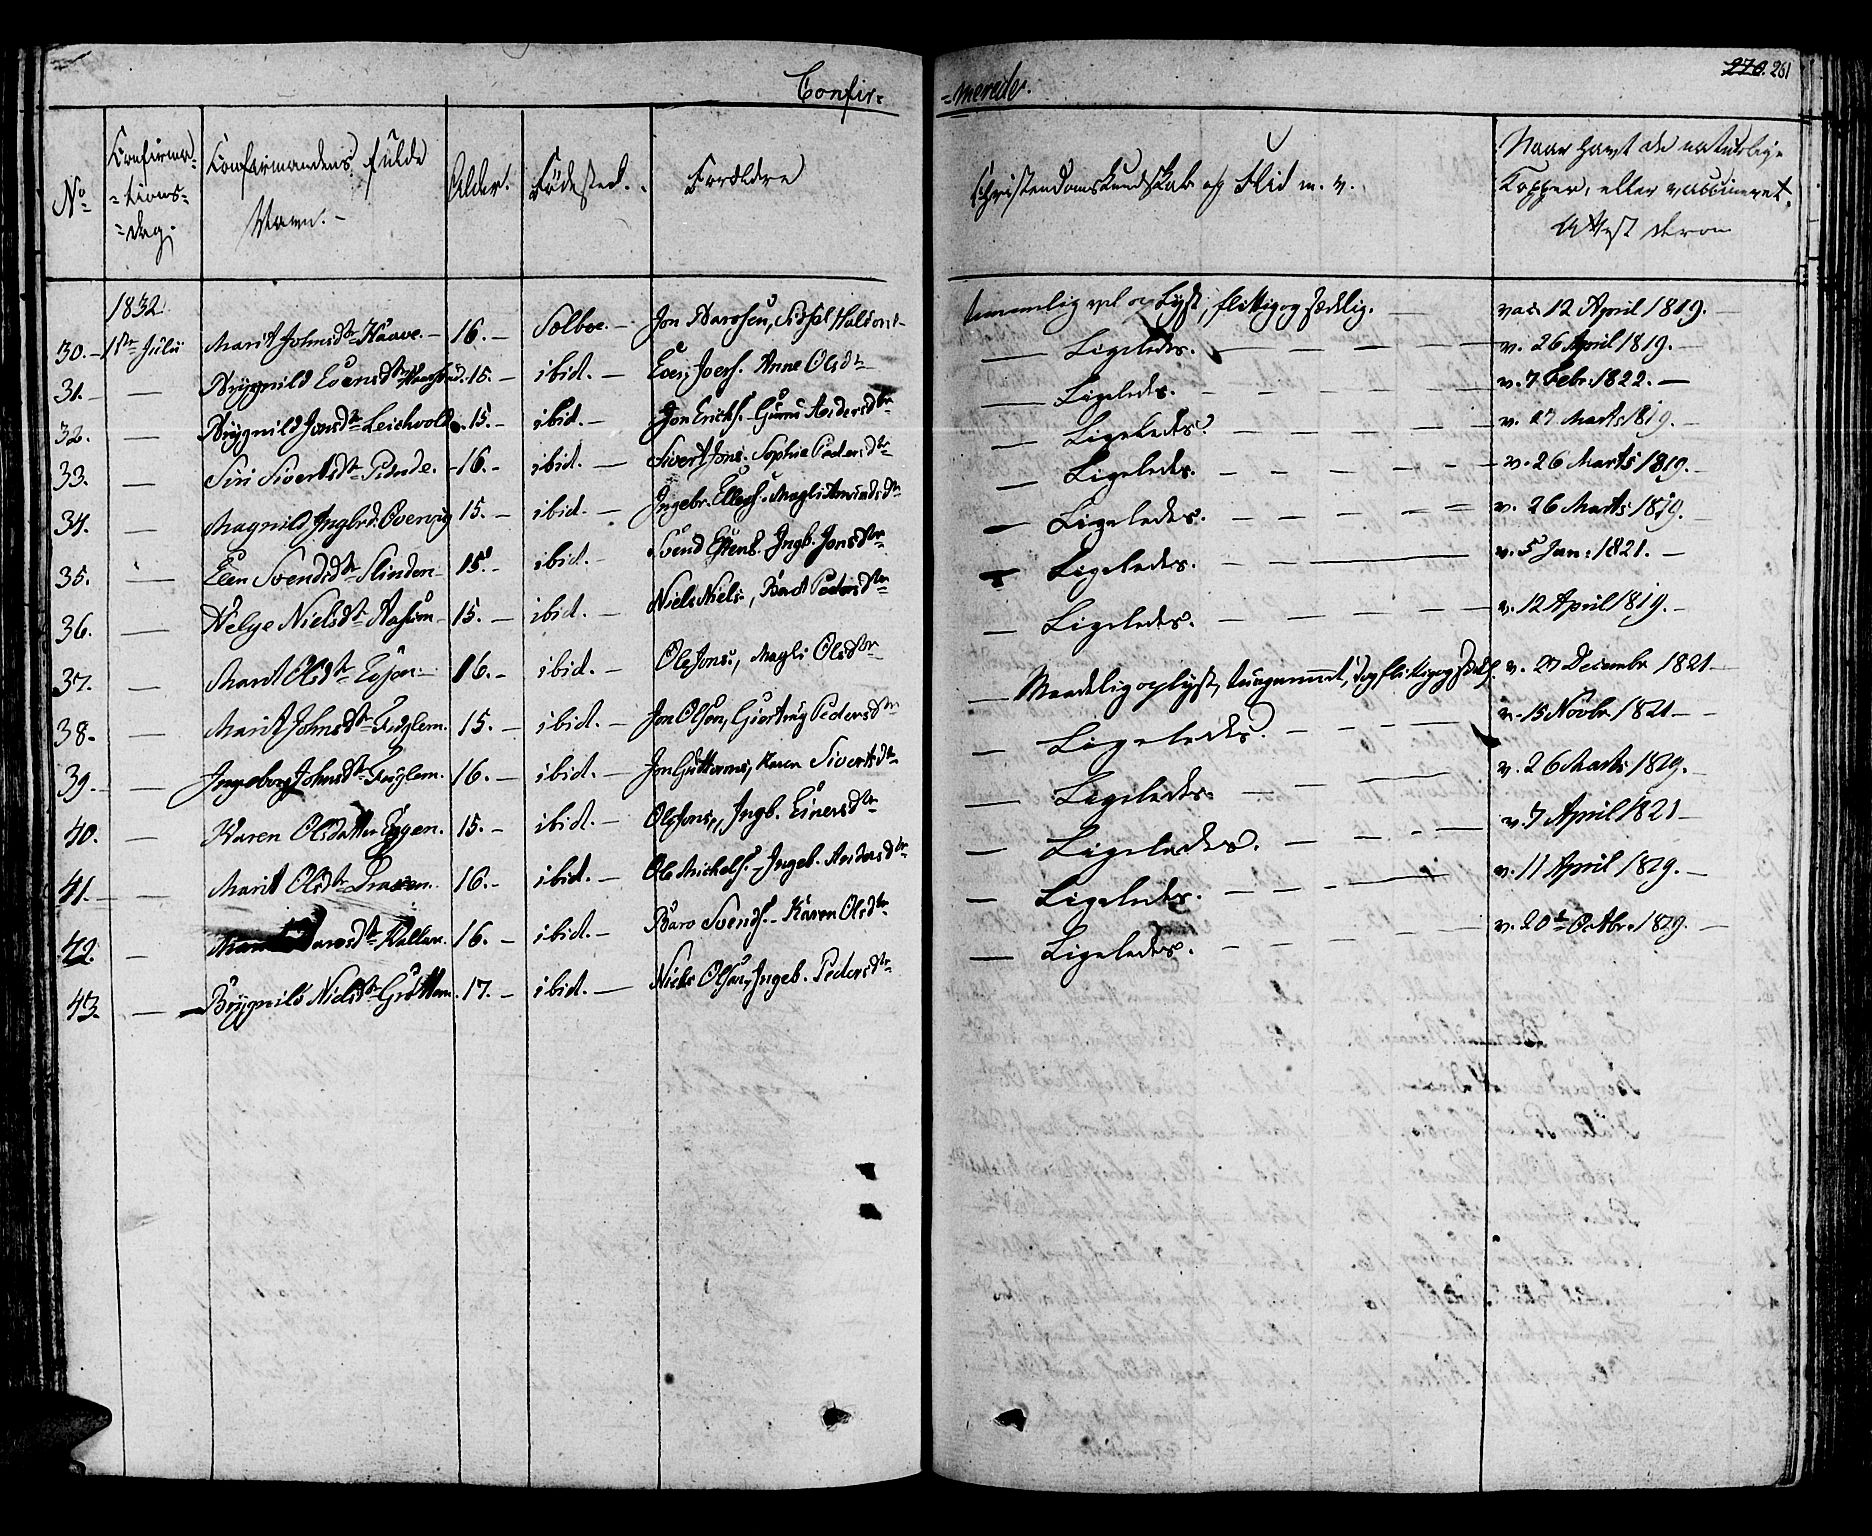 Confir=
=merede.
276. 261
No
Confirma=
=tions=
=dag.
Confirmandens fulde
Navn.
Alder.
Fødested.
Forældre
Christendomskundskab og Flid m. v.
Naar havt de naturlige
Kopper, eller vaccineret,
Attest derom
1832.
30. 1ste Julii Marit Johnsdtr Haave. 16. Selboe. Jon Barosen, Sissel Haldors- temmelig vel oplyst, flittig og sædelig. vac: 12 April 1819.
31. Brÿgnild Evensdtr 15. ibid. Even Joens. Anne Olsdtr Ligeledes. v. 26 April 1819.
32. Brÿgnild Jonsdtr Leichvold 15. ibid. Jon Erichs. Guru Andersdtr Ligeledes. v. 7 Febr. 1822.
33. Siri Sivertsdtr 16. ibid. Sivert Jons. Sophie Pedersdtr Ligeledes. v. 27 Marts 1819.
34. Magnild Ingbrd. Overvig 15. ibid. Ingebr. Ellefs. Magli Amundsdtr Ligeledes. v. 26 Marts 1819.
35. Elen Svendsdtr Slinden 15. ibid. Svend Estens. Ingb. Jonsdtr Ligeledes. v. 26 Marts 1819.
36. Helge Nielsdtr 15. ibid. Niels Niels., Beret Pedersdtr Ligeledes. v. 5 Jan: 1821.
37. Marit Olsdtr 16. ibid. Ole Jons., Magli Olsdtr Ligeledes. v. 12 April 1819.
38. Marit Johnsdtr Fuglem. 15. ibid. Jon Olsen, Giertrug Pedersdtr Maadelig oplyst, tungnemmet, dog flittig og sædel. v. 27 Decembr 1821
39. Ingeborg Johnsdtr Fuglem. 16. ibid. Jon Guttorms, Karen Sivertsdtr Ligeledes. v. 15 Novbr 1821
40. Karen Olsdatter Eggen. 15. ibid. Ole Jons., Ingb. Einersdtr Ligeledes. v. 26 Marts 1829.
41. Marit Olsdtr 16. ibid. Ole Mickels. Ingeb. Andersdtr Ligeledes. v. 7 April 1821
42. Barosdtr Kallar. 16. ibid. Baro Svends. Karen Olsdtr Ligeledes. v. 11 April 1829.
43. Brÿgnild Nielsdtr Grøttem. 17. ibid. Niels Olsen, Ingeb. Pedersdtr Ligeledes. v. 20de Octbr. 1829.